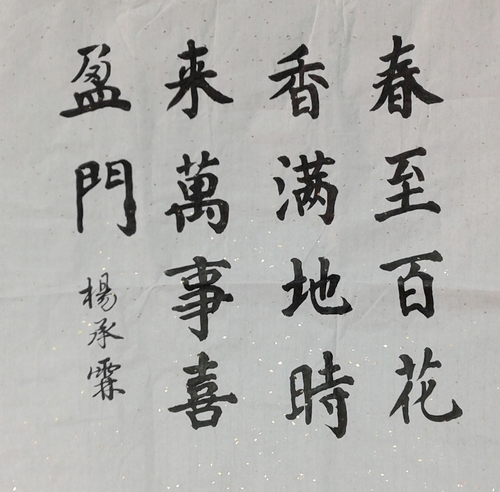 春至百花
香满地時
来萬事喜
盈門
楊承霖